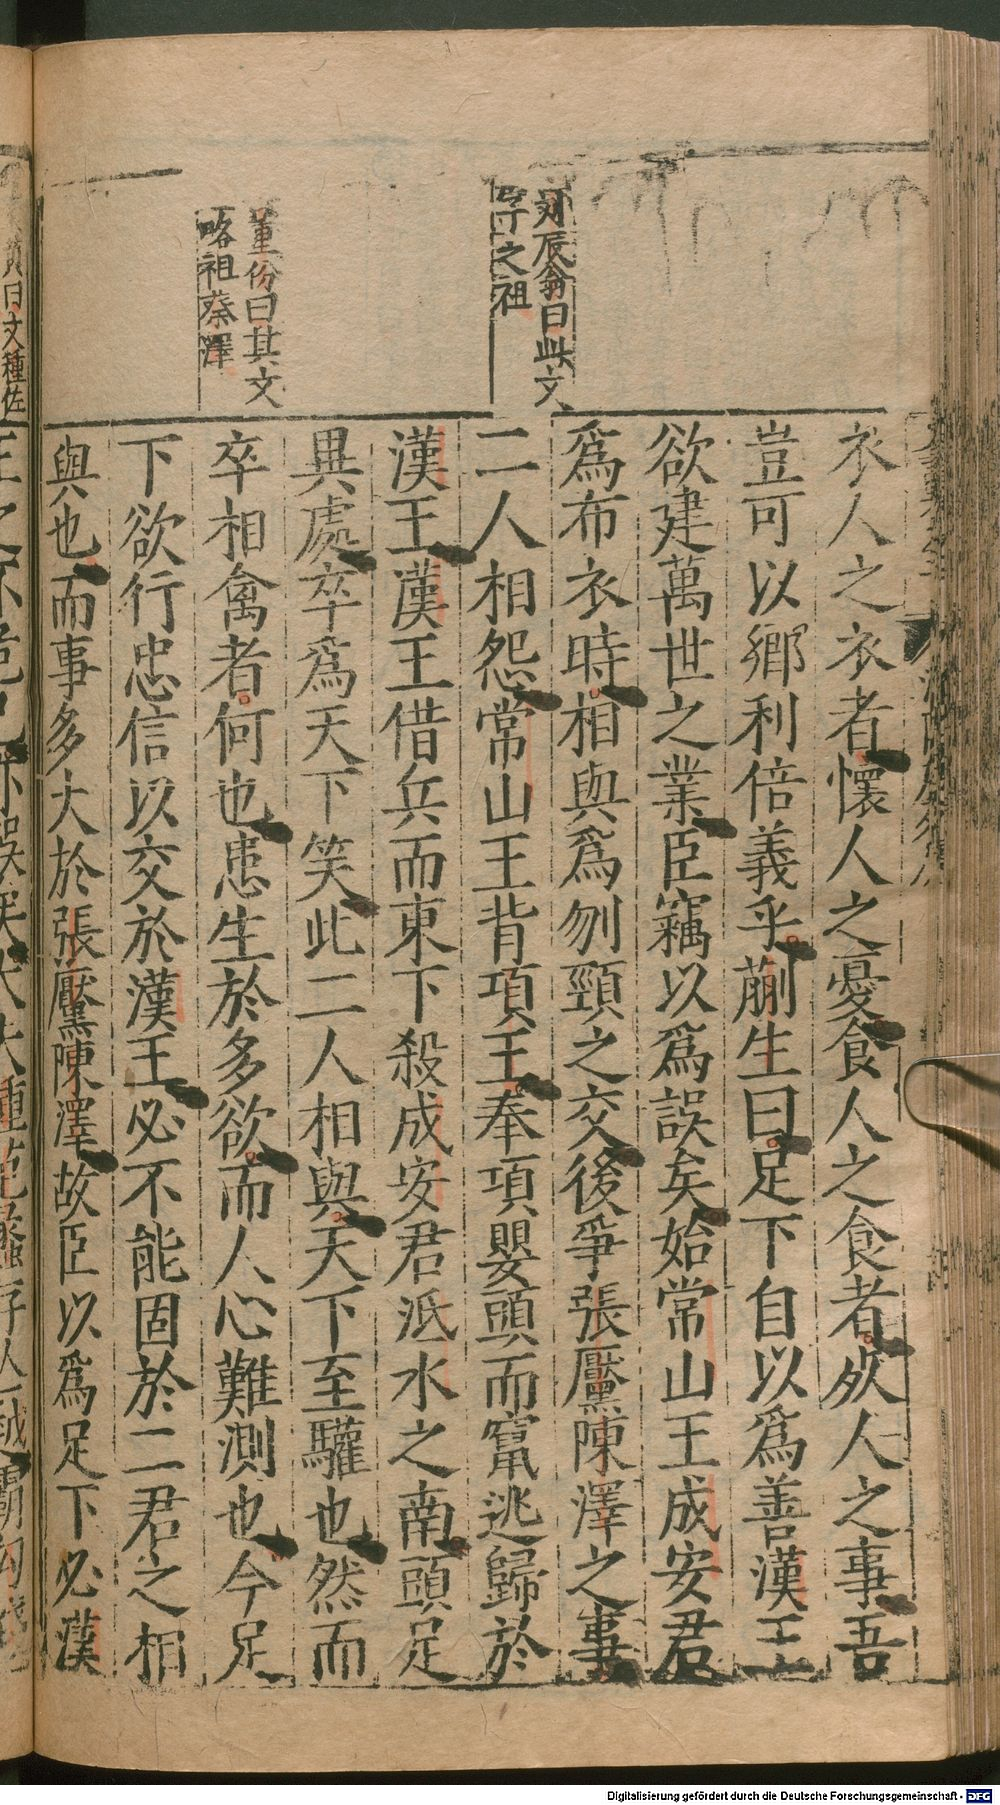 衣人之衣者懷人之憂食人之食者死人之事吾
豈可以鄉利倍義乎蒯生曰足下自以爲善漢王
欲建萬世之業臣竊以爲誤矣始常山王成安君
爲布衣時相與爲刎頸之交後爭張黶陳澤之事
二人相怨常山王背項王奉項嬰頭而竄逃歸於
漢王漢王借兵而東下殺成安君泜水之南頭足
異處卒爲天下笑此二人相與天下至驩也然而
卒相禽者何也患生於多欲而人心難測也今足
下欲行忠信以交於漢王必不能固於二君之相
與也而事多大於張黶陳澤故臣以爲足下必漢
刘辰翁曰此文
字之祖
董份曰其文
略祖蔡澤
曰文種佐
Digitalisierung gefördert durch die Deutsche Forschungsgemeinschaft - DFG